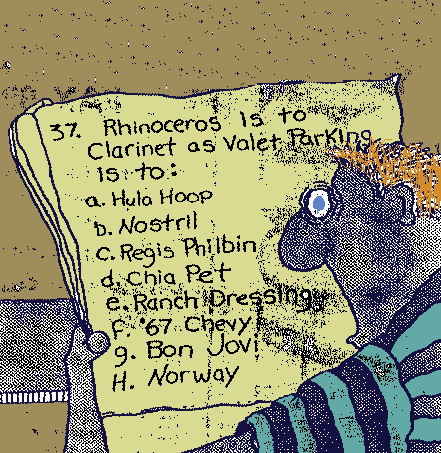 37. Rhinoceros is to
Clarinet as Valet Parking
is to:
a. Hula Hoop
b. Nostril
c. Regis Philbin
d. Chia Pet
e. Ranch Dressing
f. '67 Chevy
g. Bon Jovi
H. Norway